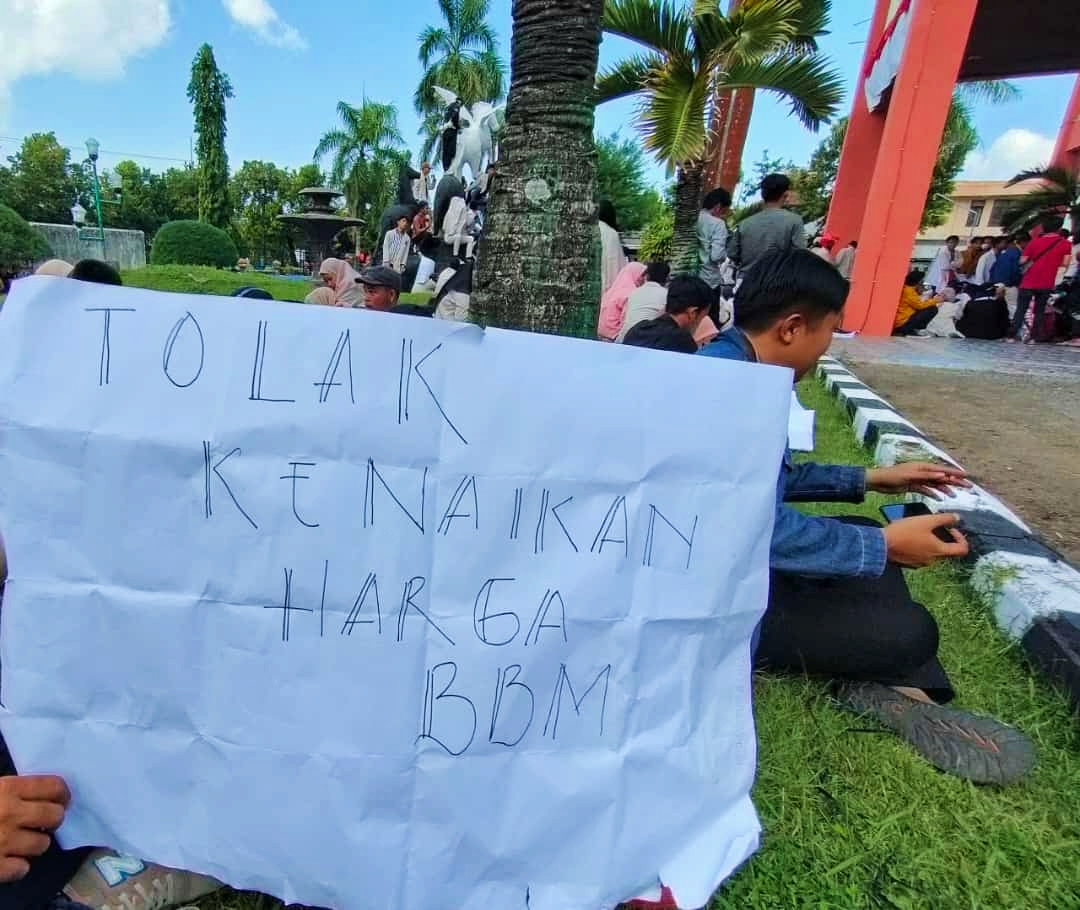 TOLAK
KENAIKAN
HARGA
BBM
N